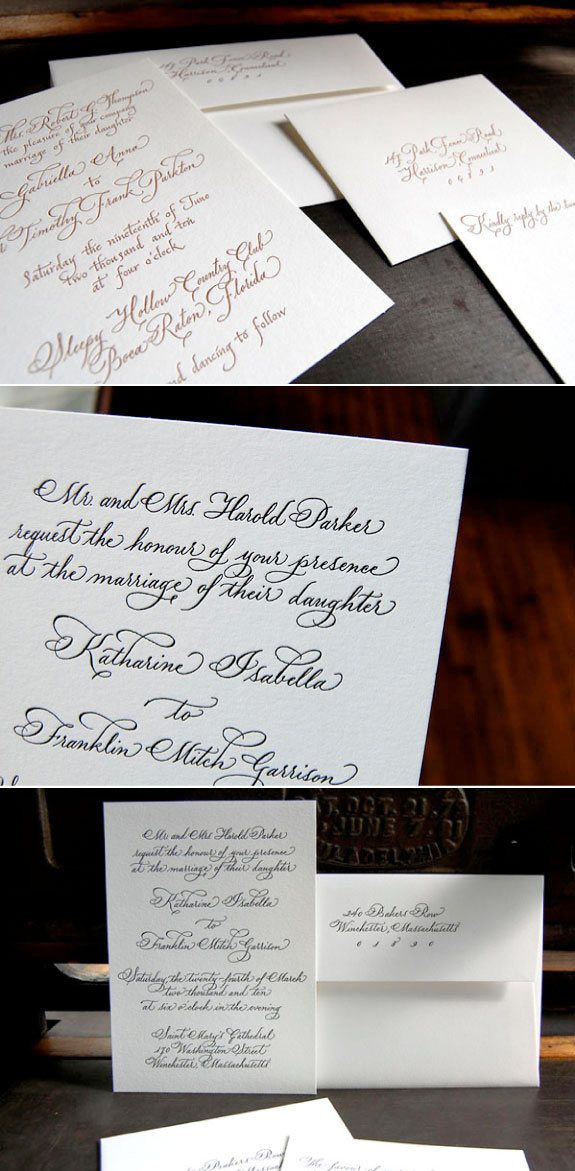 Mrs. Robert G. Thompson
the pleasure of your company
marriage of their daughter
Gabriella Anna
to
Timothy Frank Parkton
Saturday the nineteenth of June
two thousand and ten
at four o'clock
Sleepy Hollow Country Club
Boca Raton, Florida
and dancing to follow
Park Road
Harrison, Connecticut
Park Road
Harrison, Connecticut
Kindly reply by the
Mr. and Mrs. Harold Parker
request the honour of your presence
at the marriage of their daughter
Katharine Isabella
to
Franklin Mitch Garrison
Mr. and Mrs. Harold Parker
request the honour of your presence
at the marriage of their daughter
Katharine Isabella
to
Franklin Mitch Garrison
Saturday, the twenty-fourth of March
two thousand and ten
at six o'clock in the evening
Saint Mary's Cathedral
170 Washington Street
Winchester, Massachusetts
OCT. 21. 73
JUNE 7. 81
PHILADELPHIA
240 Bakers Row
Winchester, Massachusetts
01890
Bakers Row
The favour of